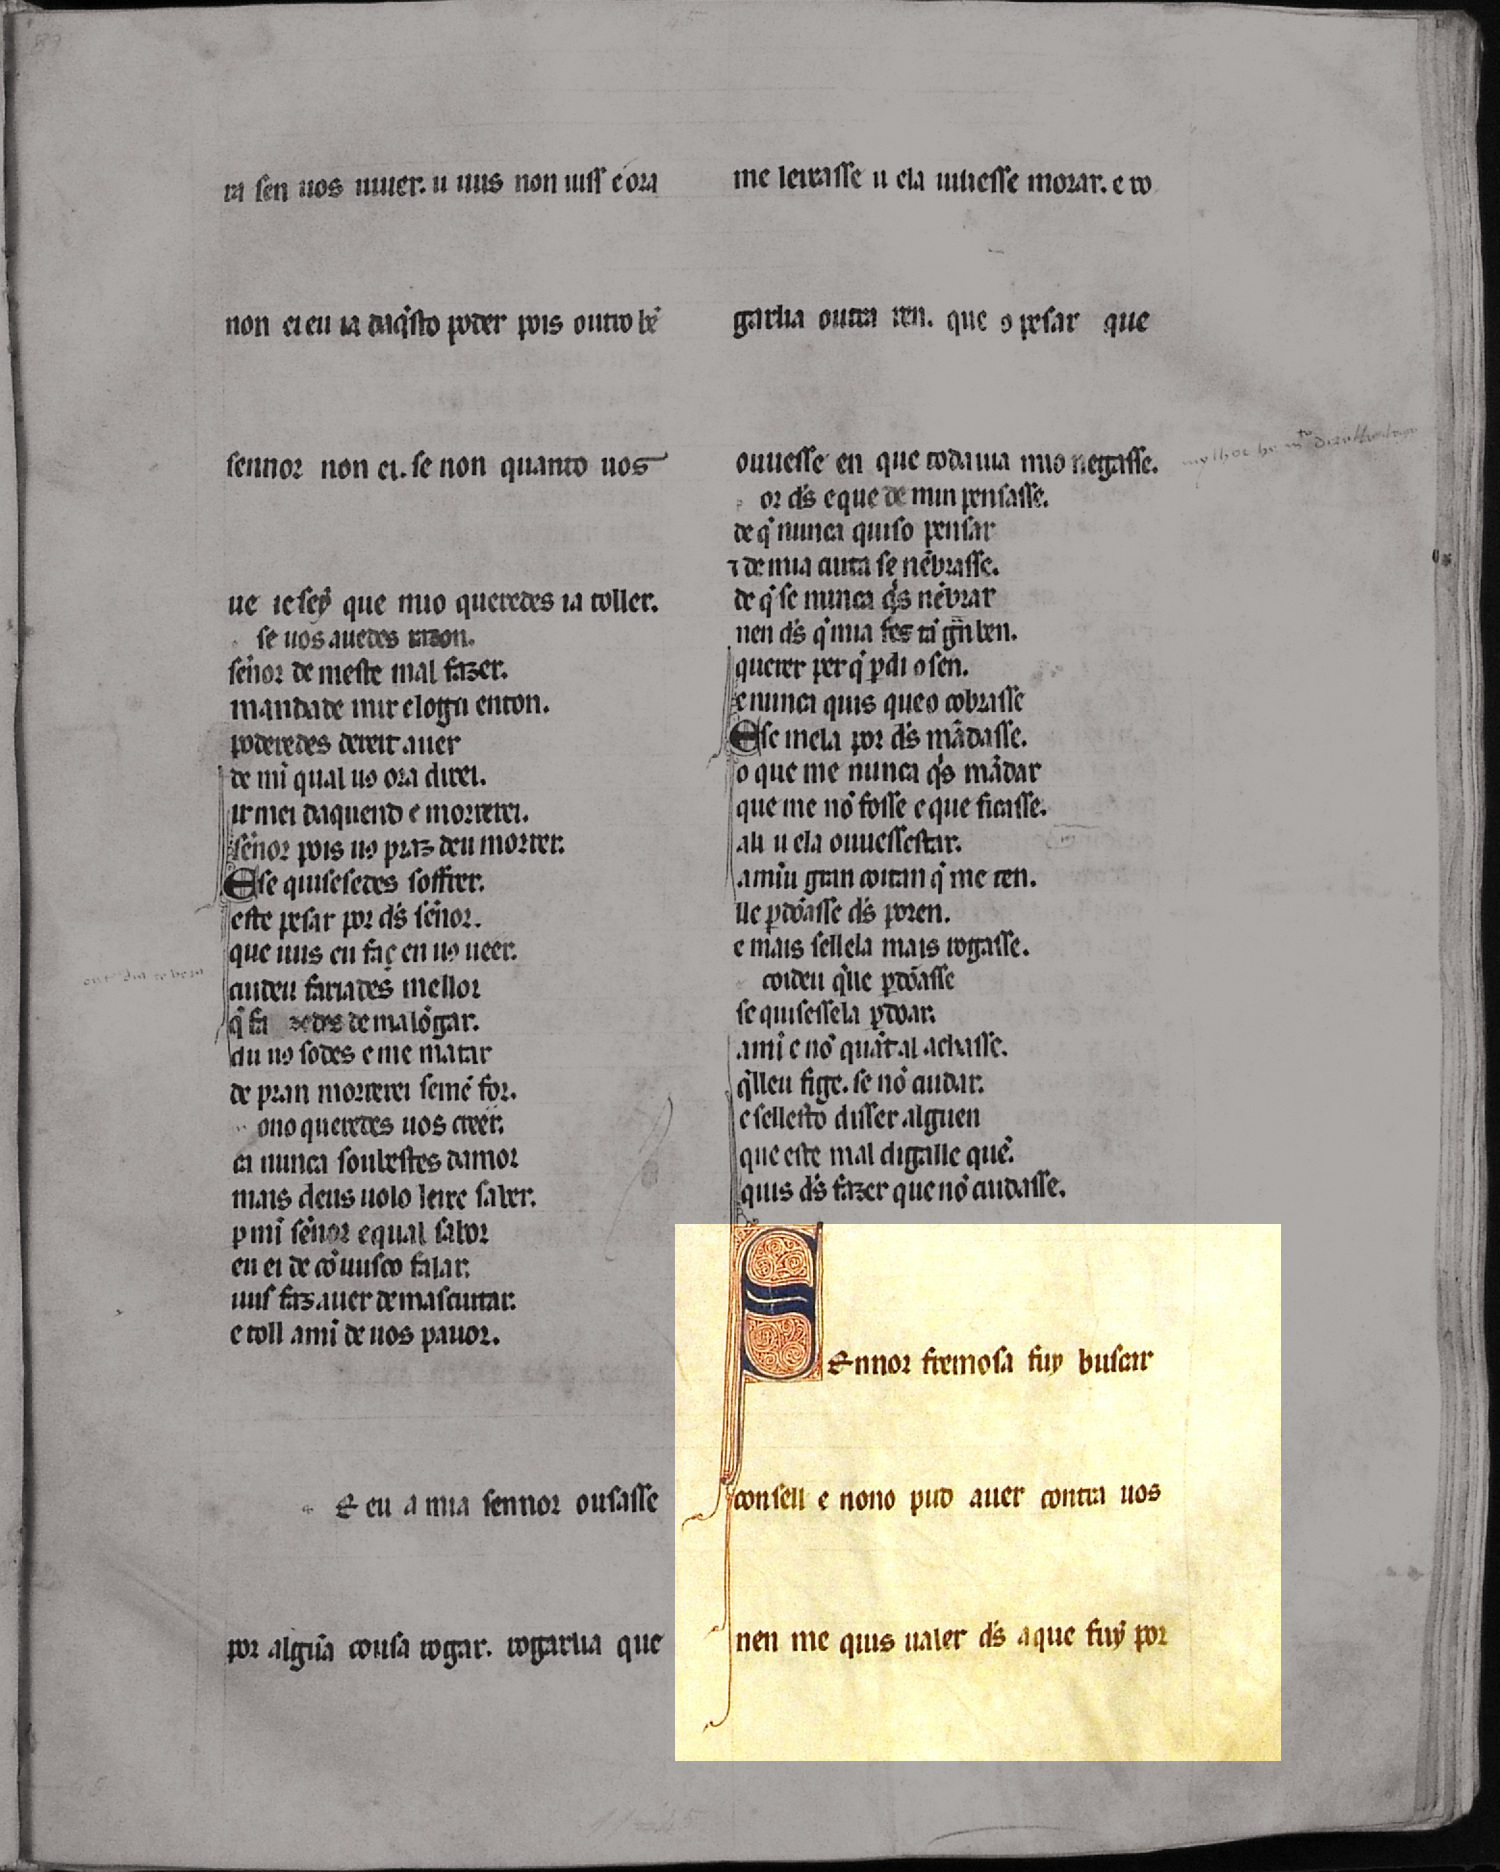 ra sen uos uiuer. u uus non uiss e ora
non ei eu ia daq̃sto poder pois outro bẽ
sennor non ei. se non quanto uos
ue ie seӱ que mio queredes ia toller.
se uos auedes razon.
sẽnor de meste mal fazer.
mandade mir e logu enton.
poderedes dereit auer
de mĩ qual uꝯ ora direi.
ir mei daquend e morrerei.
sẽnor pois uꝯ praz deu morrer.
E se quisesedes soffrer.
este pesar por ds̃ sẽnor.
que uus eu faç en uꝯ ueer.
cuideu fariades mellor
q̃ fa zedes de malõgar.
du uꝯ sodes e me matar
de pran morrerei semẽ for.
ono queredes uos creer.
ca nunca soubestes damor
mais deus uolo leixe saber.
p mĩ sẽnor e qual sabor
en ei de cõuusco falar.
uus faz auer de mascuitar.
e toll ami de uos pauor.
E eu a mia sennor ousasse
por algũa cousa rogar. rogaria que
me leixasse u ela uiuesse morar. e ro
garlia outra ren. que o pesar que
ouuesse en que todauia mio negasse.
or ds̃ e que de min pensasse.
de q̃ nunca quiso pensar
⁊ de mia cuita se nẽbrasse.
de q̃ se nunca q̃s nẽbrar
nen ds̃ q̃ mia fez tã grã ben.
querer per q̃ pdi o sen.
e nunca quis queo cobrasse
E se mela por ds̃ mãdasse.
o que me nunca q̃s mãdar
que me nõ fosse e que ficasse.
ali u ela ouuessestar.
amiũ gran coitan q̃ me ten.
lle pdõasse ds̃ poren.
e mais sellela mais rogasse.
coideu q̃lle pdõasse
se quisessela pdoar.
ami e nõ quãt al achasse.
q̃lleu fige. se nõ cuidar.
e sellesto disser alguen
que este mal digalle quẽ.
quis ds̃ fazer que nõ cuidasse.
SEnnor fremosa fuy buscar
consell e nono pud auer contra uos
nen me quis ualer ds̃ a que fuӱ por